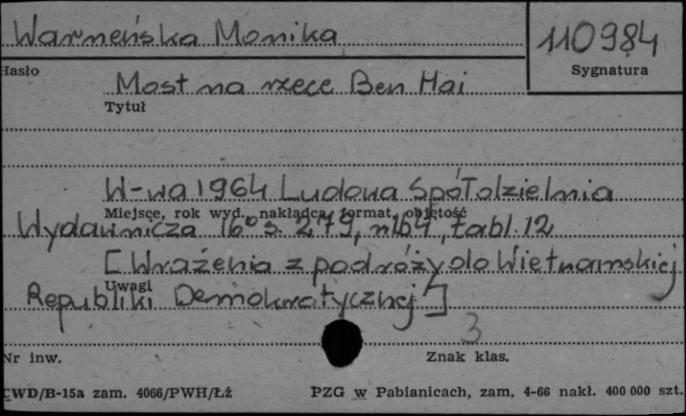 Warneńska Monika
110984
Hasło
Sygnatura
Most na rzece Ben Hai
Tytuł
W-wa 1964 Ludowa Spółdzielnia
Miejsce, rok wyd., nakładca, format, objętość
Wydawnicza 16° s. 279, nlb4, tabl. 12
[Wrażenia z podróży do Wietnamskiej
Uwagi
Republiki Demokratycznej]
3
Nr inw.
Znak klas.
CWD/B-15a zam. 4066/PWH/Łź
PZG w Pabianicach, zam. 4-66 nakł. 400 000 szt.